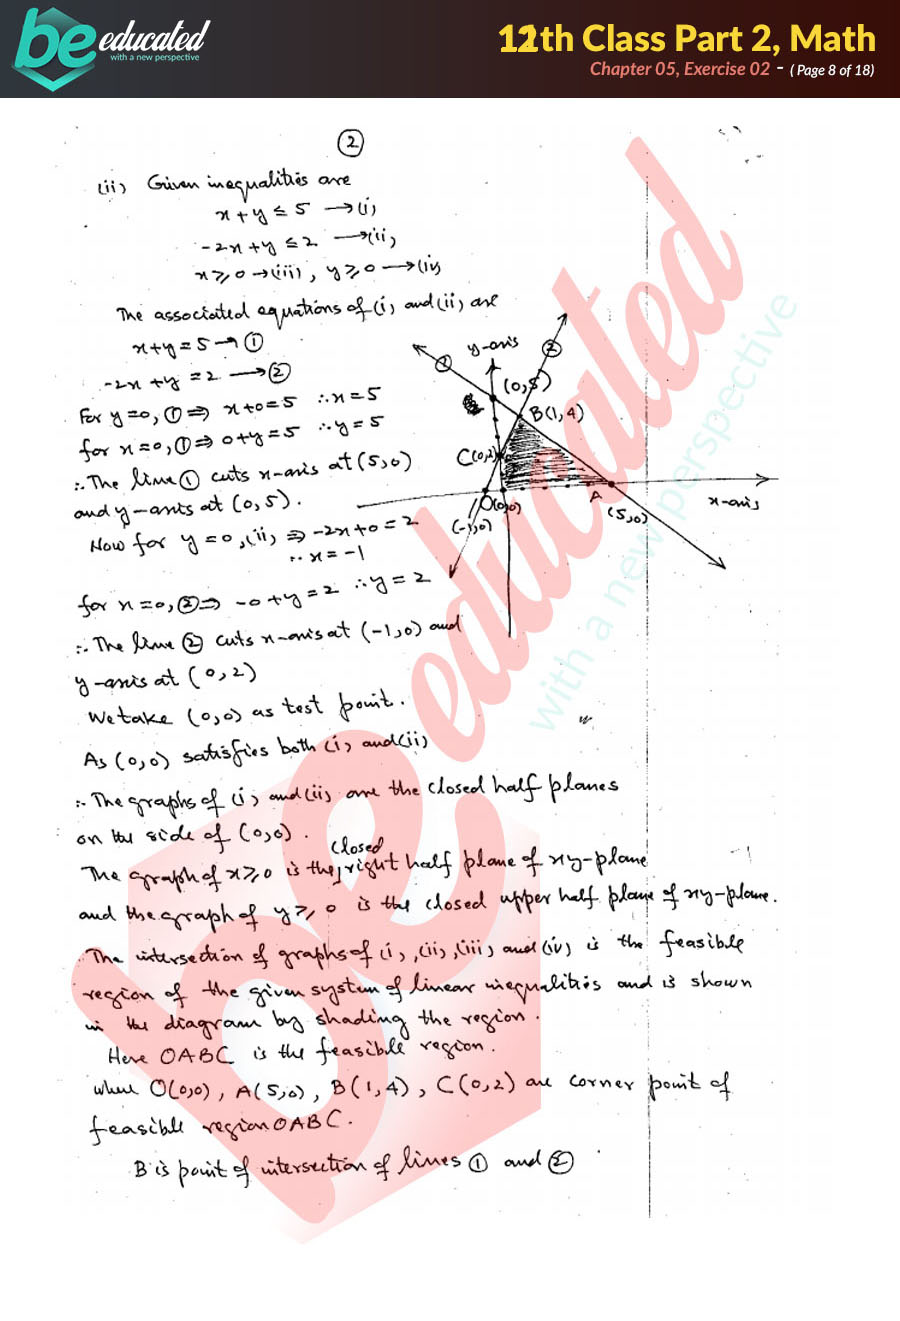 be educated
with a new perspective
12th Class Part 2, Math
Chapter 05, Exercise 02 - ( Page 8 of 18)
2
(ii) Given inequalities are
x + y ≤ 5 → (i)
-2x + y ≤ 2 → (ii)
x ≥ 0 → (iii) , y ≥ 0 → (iv)
The associated equations of (i) and (ii) are
x + y = 5 → ①
-2x + y = 2 → ②
For y = 0, ① ⇒ x + 0 = 5 ∴ x = 5
for x = 0, ① ⇒ 0 + y = 5 ∴ y = 5
∴ The line ① cuts x-axis at (5,0)
and y-axis at (0,5).
Now for y = 0, (ii) ⇒ -2x + 0 = 2
∴ x = -1
for x = 0, ② ⇒ -0 + y = 2 ∴ y = 2
∴ The line ② cuts x-axis at (-1,0) and
y-axis at (0,2)
We take (0,0) as test point.
As (0,0) satisfies both (i) and (ii)
∴ The graphs of (i) and (ii) are the closed half planes
on the side of (0,0).
The graph of x ≥ 0 is the closed right half plane of xy-plane
and the graph of y ≥ 0 is the closed upper half plane of xy-plane.
The intersection of graphs of (i), (ii), (iii) and (iv) is the feasible
region of the given system of linear inequalities and is shown
in the diagram by shading the region.
Here OABC is the feasible region.
where O(0,0), A(5,0), B(1,4), C(0,2) are corner point of
feasible region OABC.
B is point of intersection of lines ① and ②
y-axis
①
②
(0,5)
B(1,4)
C(0,2)
O(0,0)
A
(5,0)
(-1,0)
x-axis
be educated
with a new perspective